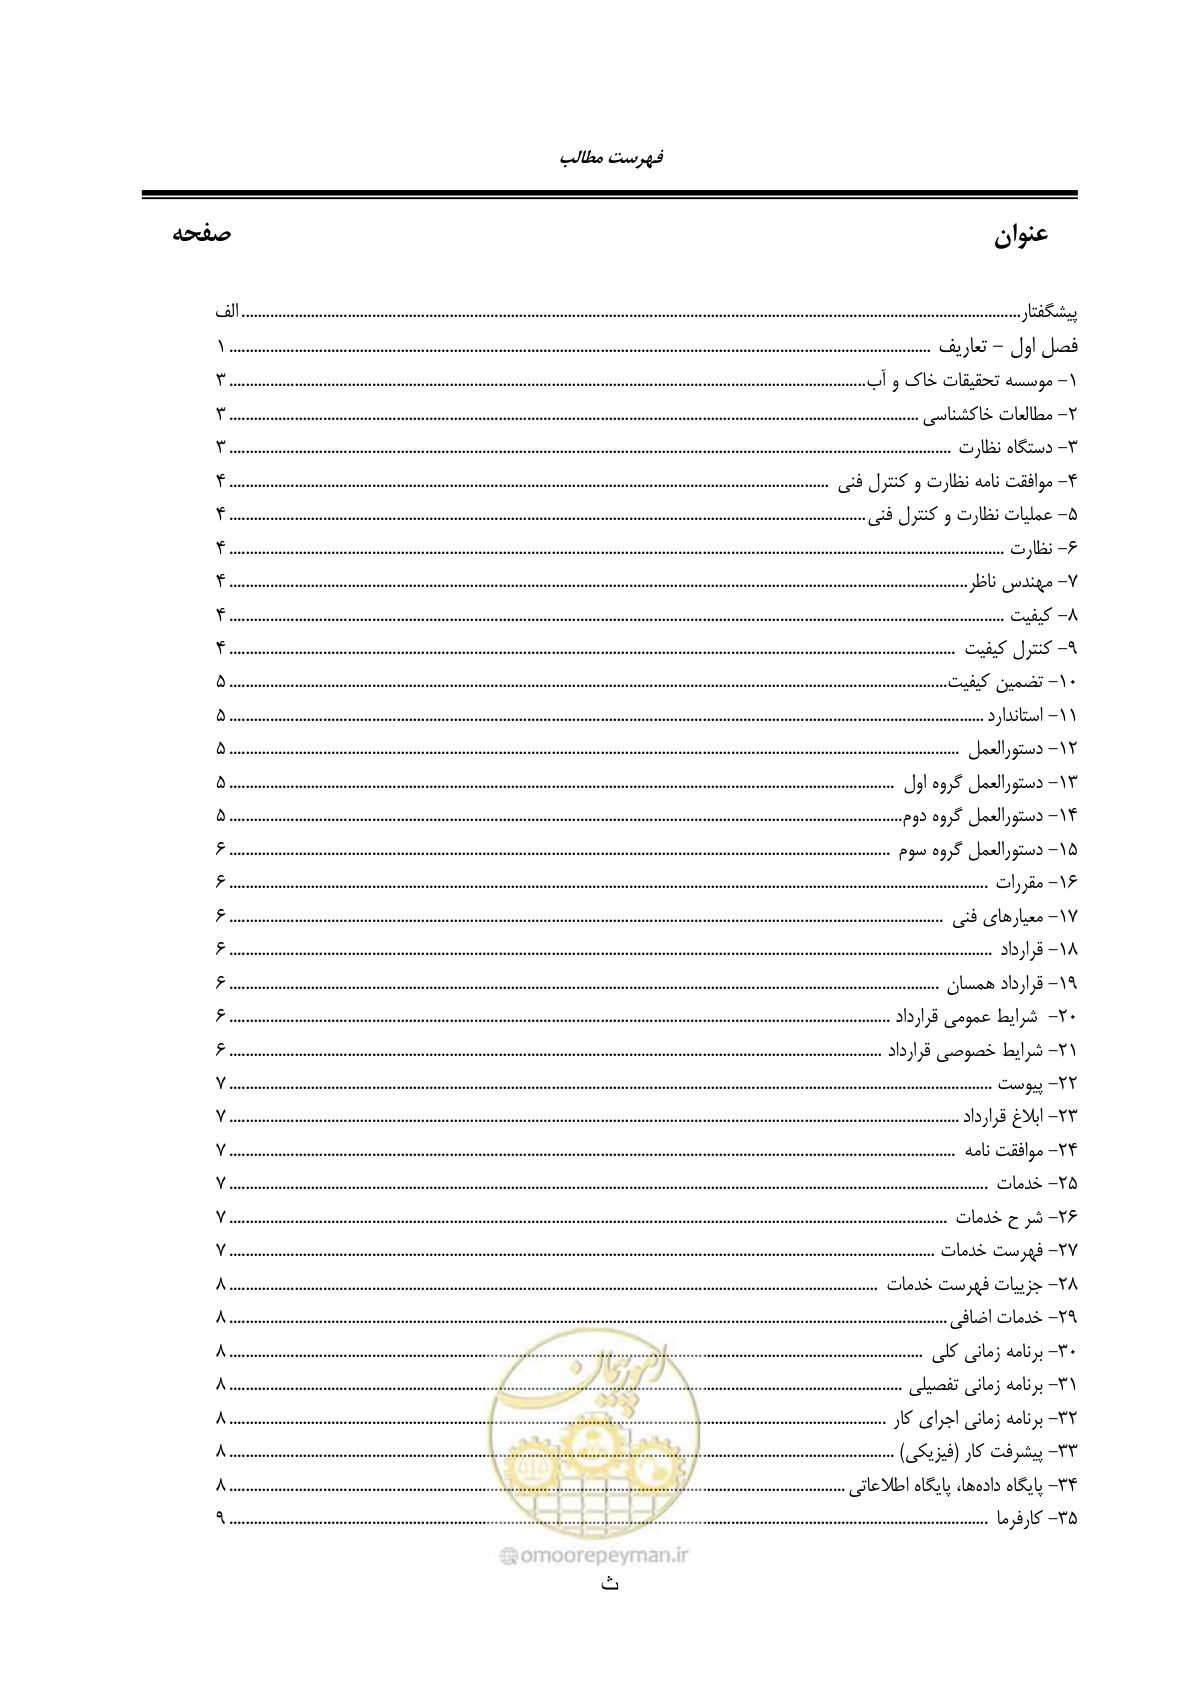 فهرست مطالب
عنوان صفحه
پیشگفتار الف
فصل اول – تعاریف ۱
۱- موسسه تحقیقات خاک و آب ۳
۲- مطالعات خاکشناسی ۳
۳- دستگاه نظارت ۳
۴- موافقت نامه نظارت و کنترل فنی ۴
۵- عملیات نظارت و کنترل فنی ۴
۶- نظارت ۴
۷- مهندس ناظر ۴
۸- کیفیت ۴
۹- کنترل کیفیت ۴
۱۰- تضمین کیفیت ۵
۱۱- استاندارد ۵
۱۲- دستورالعمل ۵
۱۳- دستورالعمل گروه اول ۵
۱۴- دستورالعمل گروه دوم ۵
۱۵- دستورالعمل گروه سوم ۶
۱۶- مقررات ۶
۱۷- معیارهای فنی ۶
۱۸- قرارداد ۶
۱۹- قرارداد همسان ۶
۲۰- شرایط عمومی قرارداد ۶
۲۱- شرایط خصوصی قرارداد ۶
۲۲- پیوست ۷
۲۳- ابلاغ قرارداد ۷
۲۴- موافقت نامه ۷
۲۵- خدمات ۷
۲۶- شر ح خدمات ۷
۲۷- فهرست خدمات ۷
۲۸- جزییات فهرست خدمات ۸
۲۹- خدمات اضافی ۸
۳۰- برنامه زمانی کلی ۸
۳۱- برنامه زمانی تفصیلی ۸
۳۲- برنامه زمانی اجرای کار ۸
۳۳- پیشرفت کار (فیزیکی) ۸
۳۴- پایگاه داده‌ها، پایگاه اطلاعاتی ۸
۳۵- کارفرما ۹
امور پیمان
@omoorepeyman.ir
ث